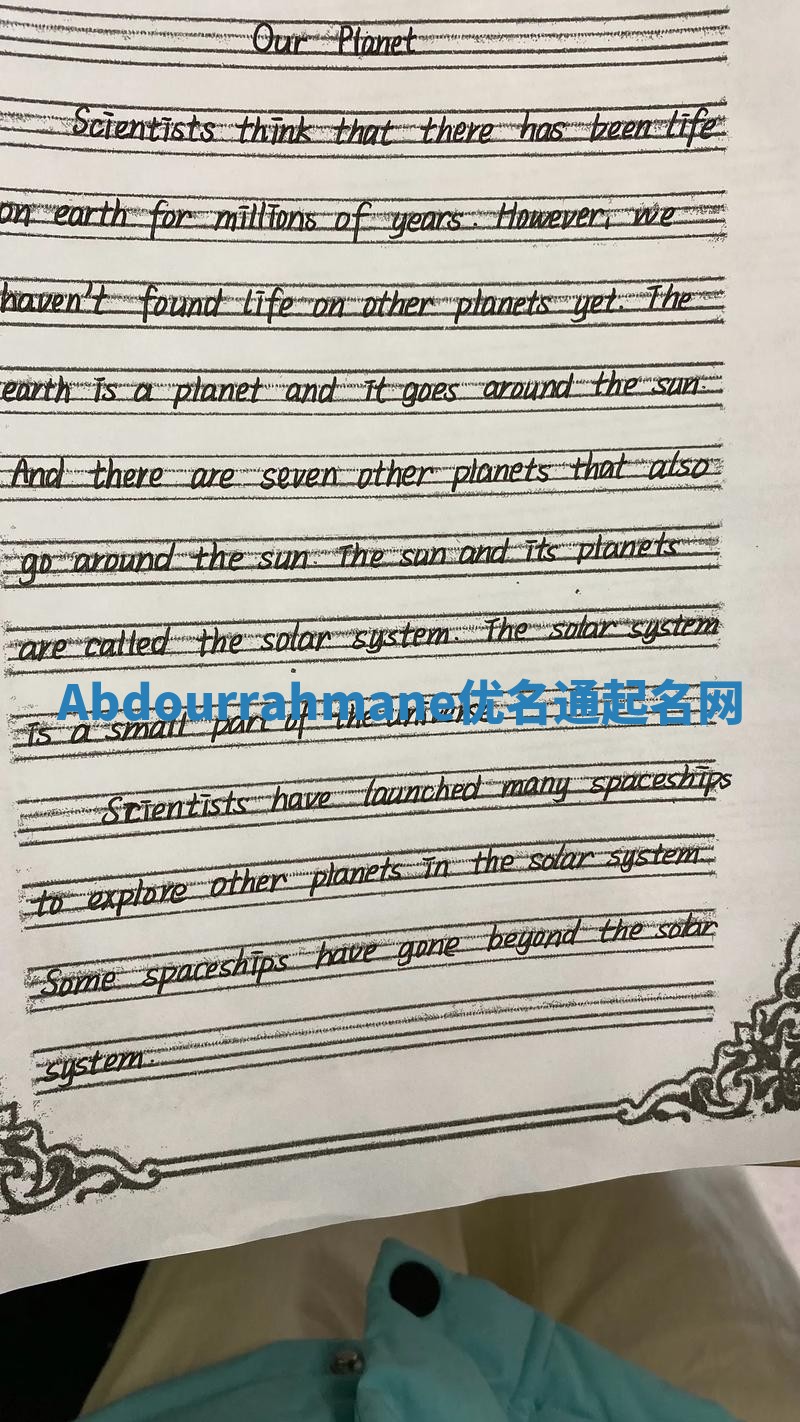 Our Planet
Scientists think that there has been life
on earth for millions of years. However, we
haven't found life on other planets yet. The
earth is a planet and it goes around the sun.
And there are seven other planets that also
go around the sun. The sun and its planets
are called the solar system. The solar system
Abdourrahmane优名通起名网
is a small part of the universe
Scientists have launched many spaceships
to explore other planets in the solar system.
Some spaceships have gone beyond the solar
system.